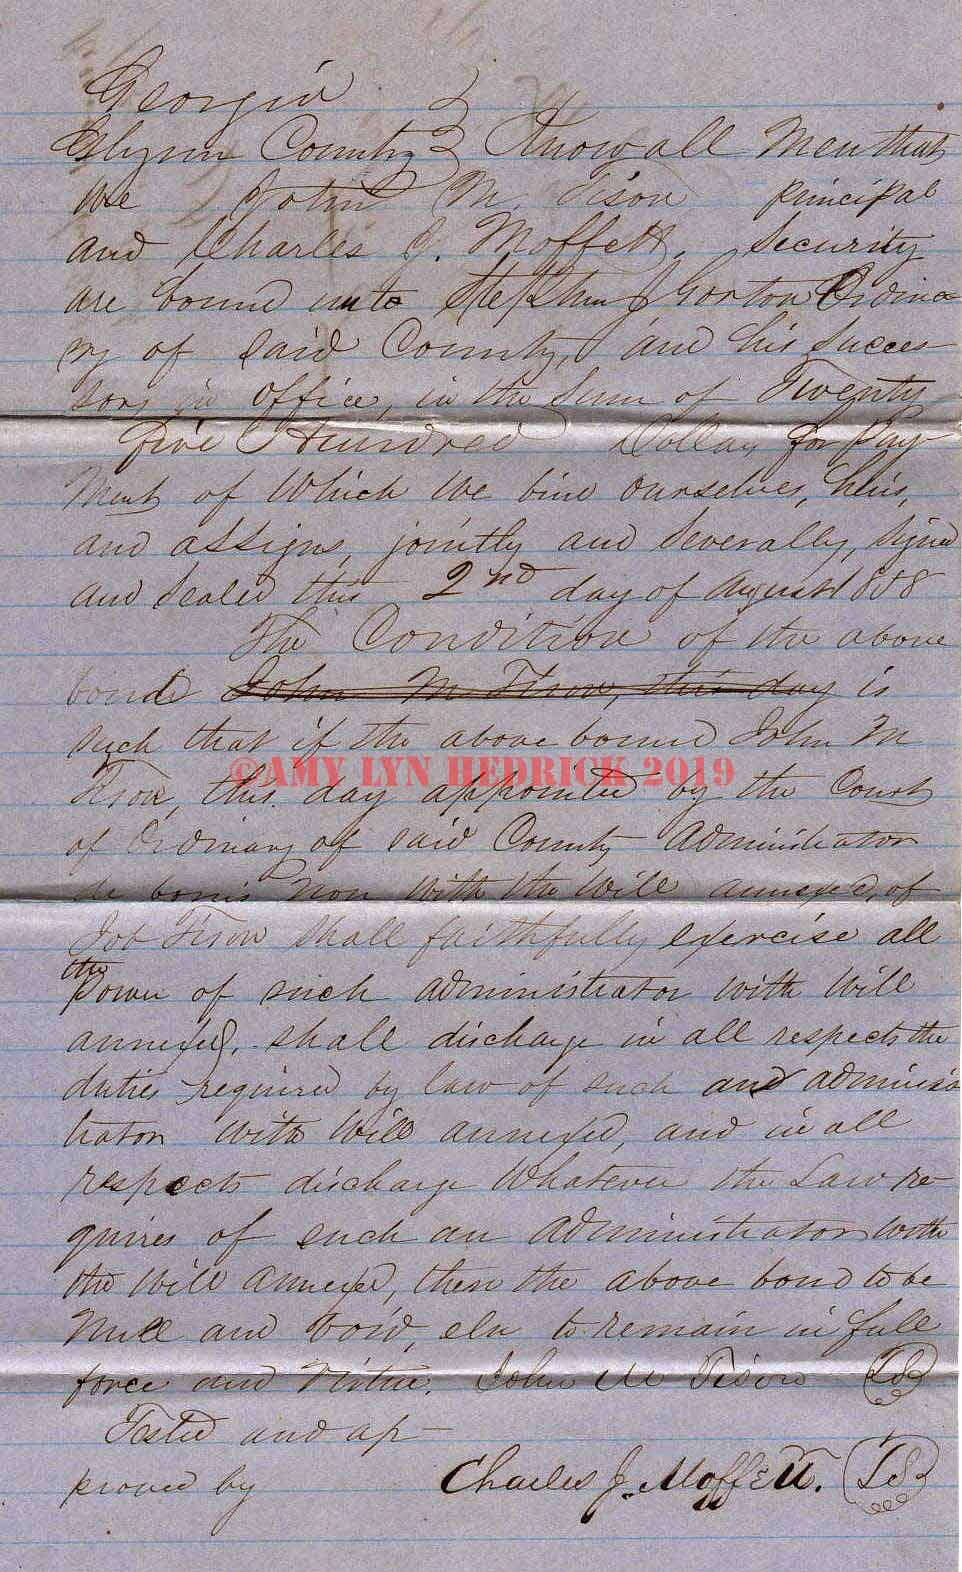 Georgia }
Glynn County } Know all Men that
We John M. Tison principal
and Charles J. Moffett, Security
are bound unto Stephen J Gorton Ordina
ry of said County, and his Succes
sors in office, in the Sum of Twenty
five Hundred Dollars for Pay
Ment of Which We bind ourselves, heirs,
and assigns, jointly and Severally, Signed
and Sealed this 2nd day of August 1858
The Condition of the above
bond John M Tison, this day is
such that if the above bound John M
Tison, this day appointed by the Court
of Ordinary of said County Administrator
de bonis non with the Will annexed, of
Job Tison shall faithfully exercise all
the
power of such administrator with Will
annexed, shall discharge in all respects the
duties required by law of such and adminis
trator with Will annexed, and in all
respects discharge Whatever the Law re-
quires of such an administrator with
the Will annexed, then the above bond to be
Null and Void, else to remain in full
force and Virtue. John M Tison LS
Tested and ap-
proved by Charles J. Moffett. LS
©AMY LYN HEDRICK 2019